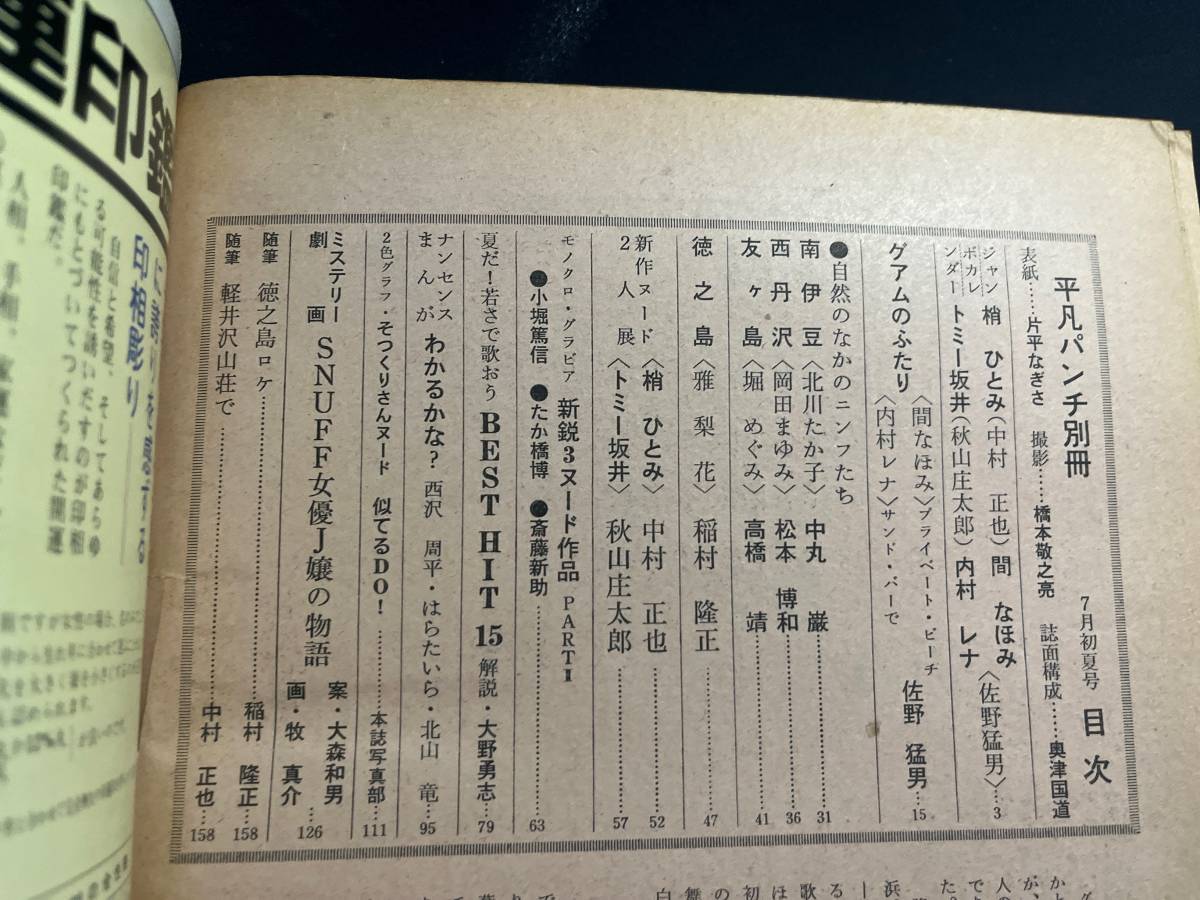 平凡パンチ別冊 7月初夏号 目次
表紙……片平なぎさ 撮影……橋本敬之亮 誌面構成……奥津国道
ジャンボカレンダー
梢 ひとみ(中村 正也) 間 なほみ〈佐野猛男〉…3
トミー坂井(秋山庄太郎) 内村 レナ
グアムのふたり
〈間なほみ〉プライベート・ビーチ
〈内村レナ〉サンド・バーで
佐野 猛男…15
●自然のなかのニンフたち
南伊豆〈北川たか子〉中丸 巌…31
西丹沢〈岡田まゆみ〉松本 博和…36
友ヶ島〈堀 めぐみ〉高橋 靖…41
徳之島〈雅梨花〉稲村 隆正…47
新作ヌード2人展
〈梢 ひとみ〉中村 正也…52
〈トミー坂井〉秋山庄太郎…57
モノクロ・グラビア 新鋭3ヌード作品 PARTI
●小堀篤信 ●たか橋博 ●斎藤新助…63
夏だ!若さで歌おう BEST HIT 15 解説・大野勇志…79
ナンセンスまんが わかるかな? 西沢 周平・はらたいら・北山 竜…95
2色グラフ・そっくりさんヌード 似てるDO!…本誌写真部…111
ミステリー劇画 SNUFF女優J嬢の物語
案・大森和男
画・牧 真介…126
随筆 徳之島ロケ……稲村 隆正…158
随筆 軽井沢山荘で……中村 正也…158
印鑑
印相彫り
自信と希望、そしてあらゆ
る可能性を誘いだすのが印相
にもとづいてつくられた開運
印鑑だ。